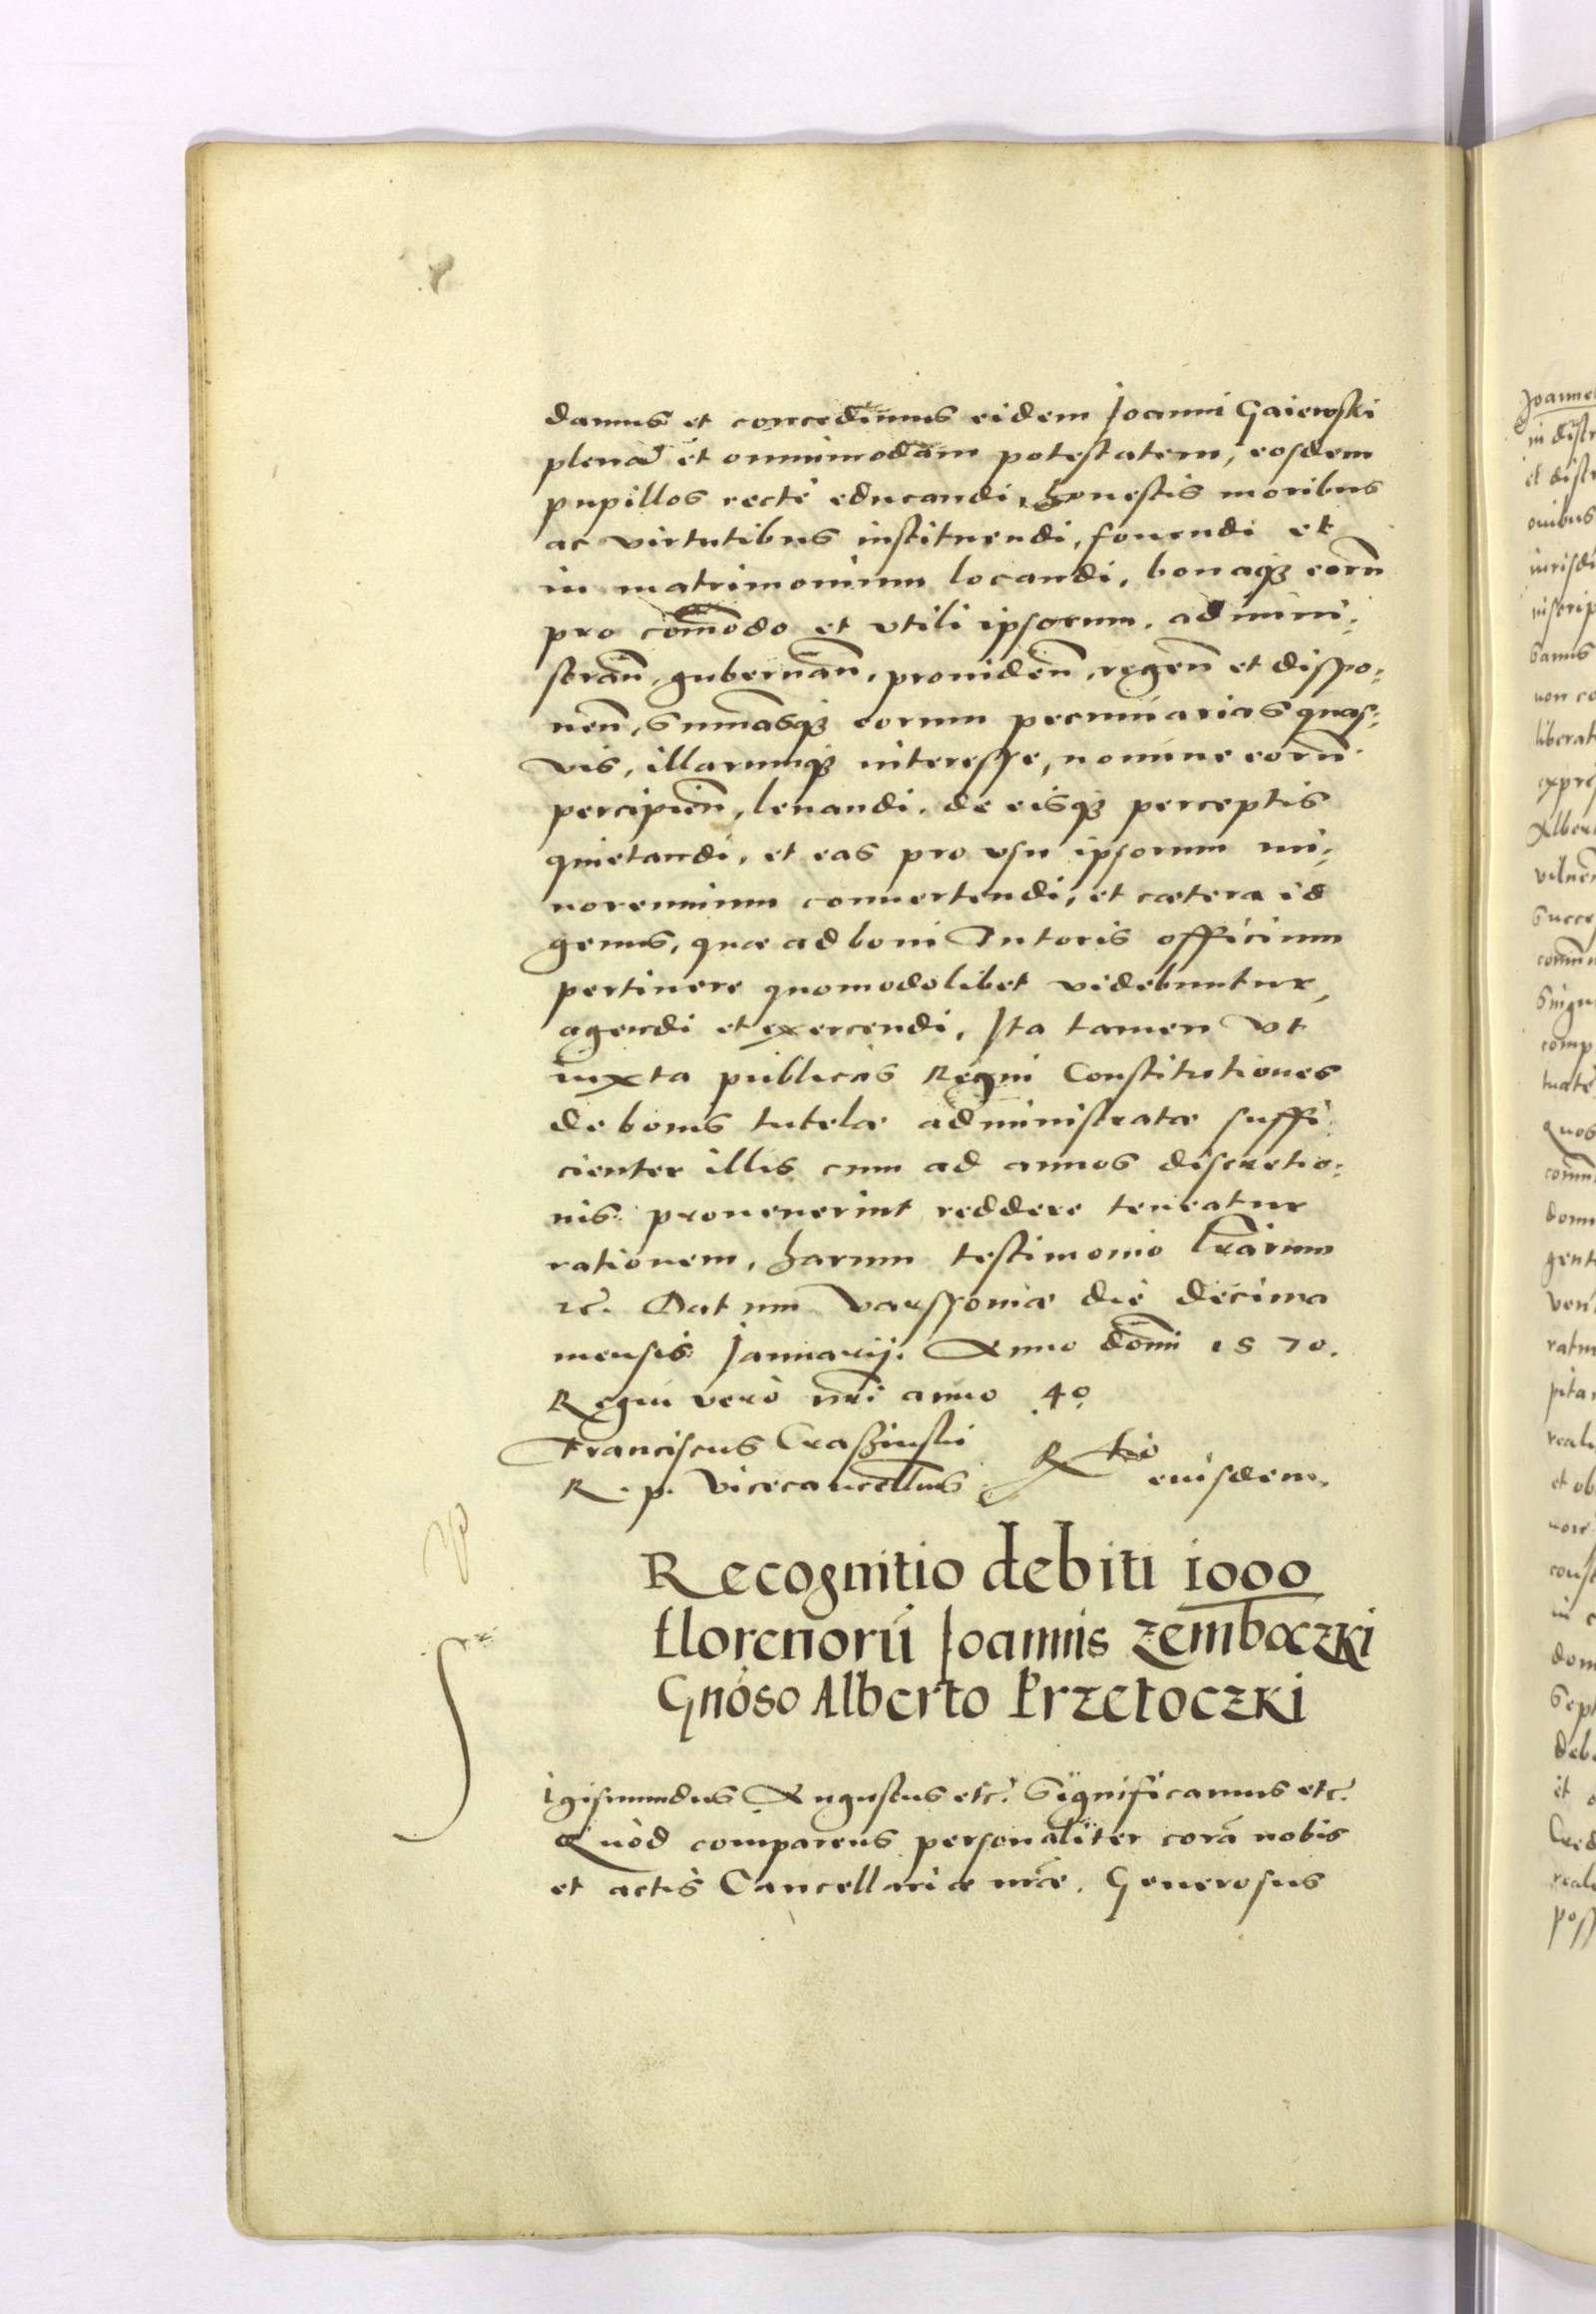 damus et concedimus eidem Joanni Gaiewski
plenā et omnimodam potestatem, eosdem
pupillos rectè educandi, honestis moribus
ac virtutibus instituendi, fouendi et
in matrimonium locandi, bonaq3 eorū
pro com̄odo et vtili ipsorum, admini:
strān̄, gubernān̄, prouidēn̄, regēn̄ et dispo:
nēn̄, Sum̄asq3 eorum pecuniarias quas:
vis, illarumq3 interesse, nomine eorū
percipiēn̄, leuandi, de eisq3 perceptis
quietandi, et eas pro vsu ipsorum mi:
norennium conuertendi, et cætera id
genus, quæ ad boni Tutoris officium
pertinere quomodolibet videbuntur,
agendi et exercendi, Ita tamen vt
iuxta publicas Regni Constitutiones
de bonis tutelæ administratæ suffi:
cienter illis cum ad annos discretio:
nis prouenerint reddere teneatur
rationem, harum testimonio l̄rarum
etc̄. Datum Varssouiæ die decima
mensis Januarij. Anno dom̄i 1570.
Regni verò nr̄i anno 40
Franciscus Crasinski
R. p. Vicecancellarius Rtio eiusdem.
Recognitio debiti 1000
florenorū Joannis Zemboczki
Gnōso Alberto Przetoczki
S
igismundus Augustus etc̄. Significamus etc̄.
Quod comparens personaliter corā nobis
et actis Cancellariæ nr̄æ, Generosus